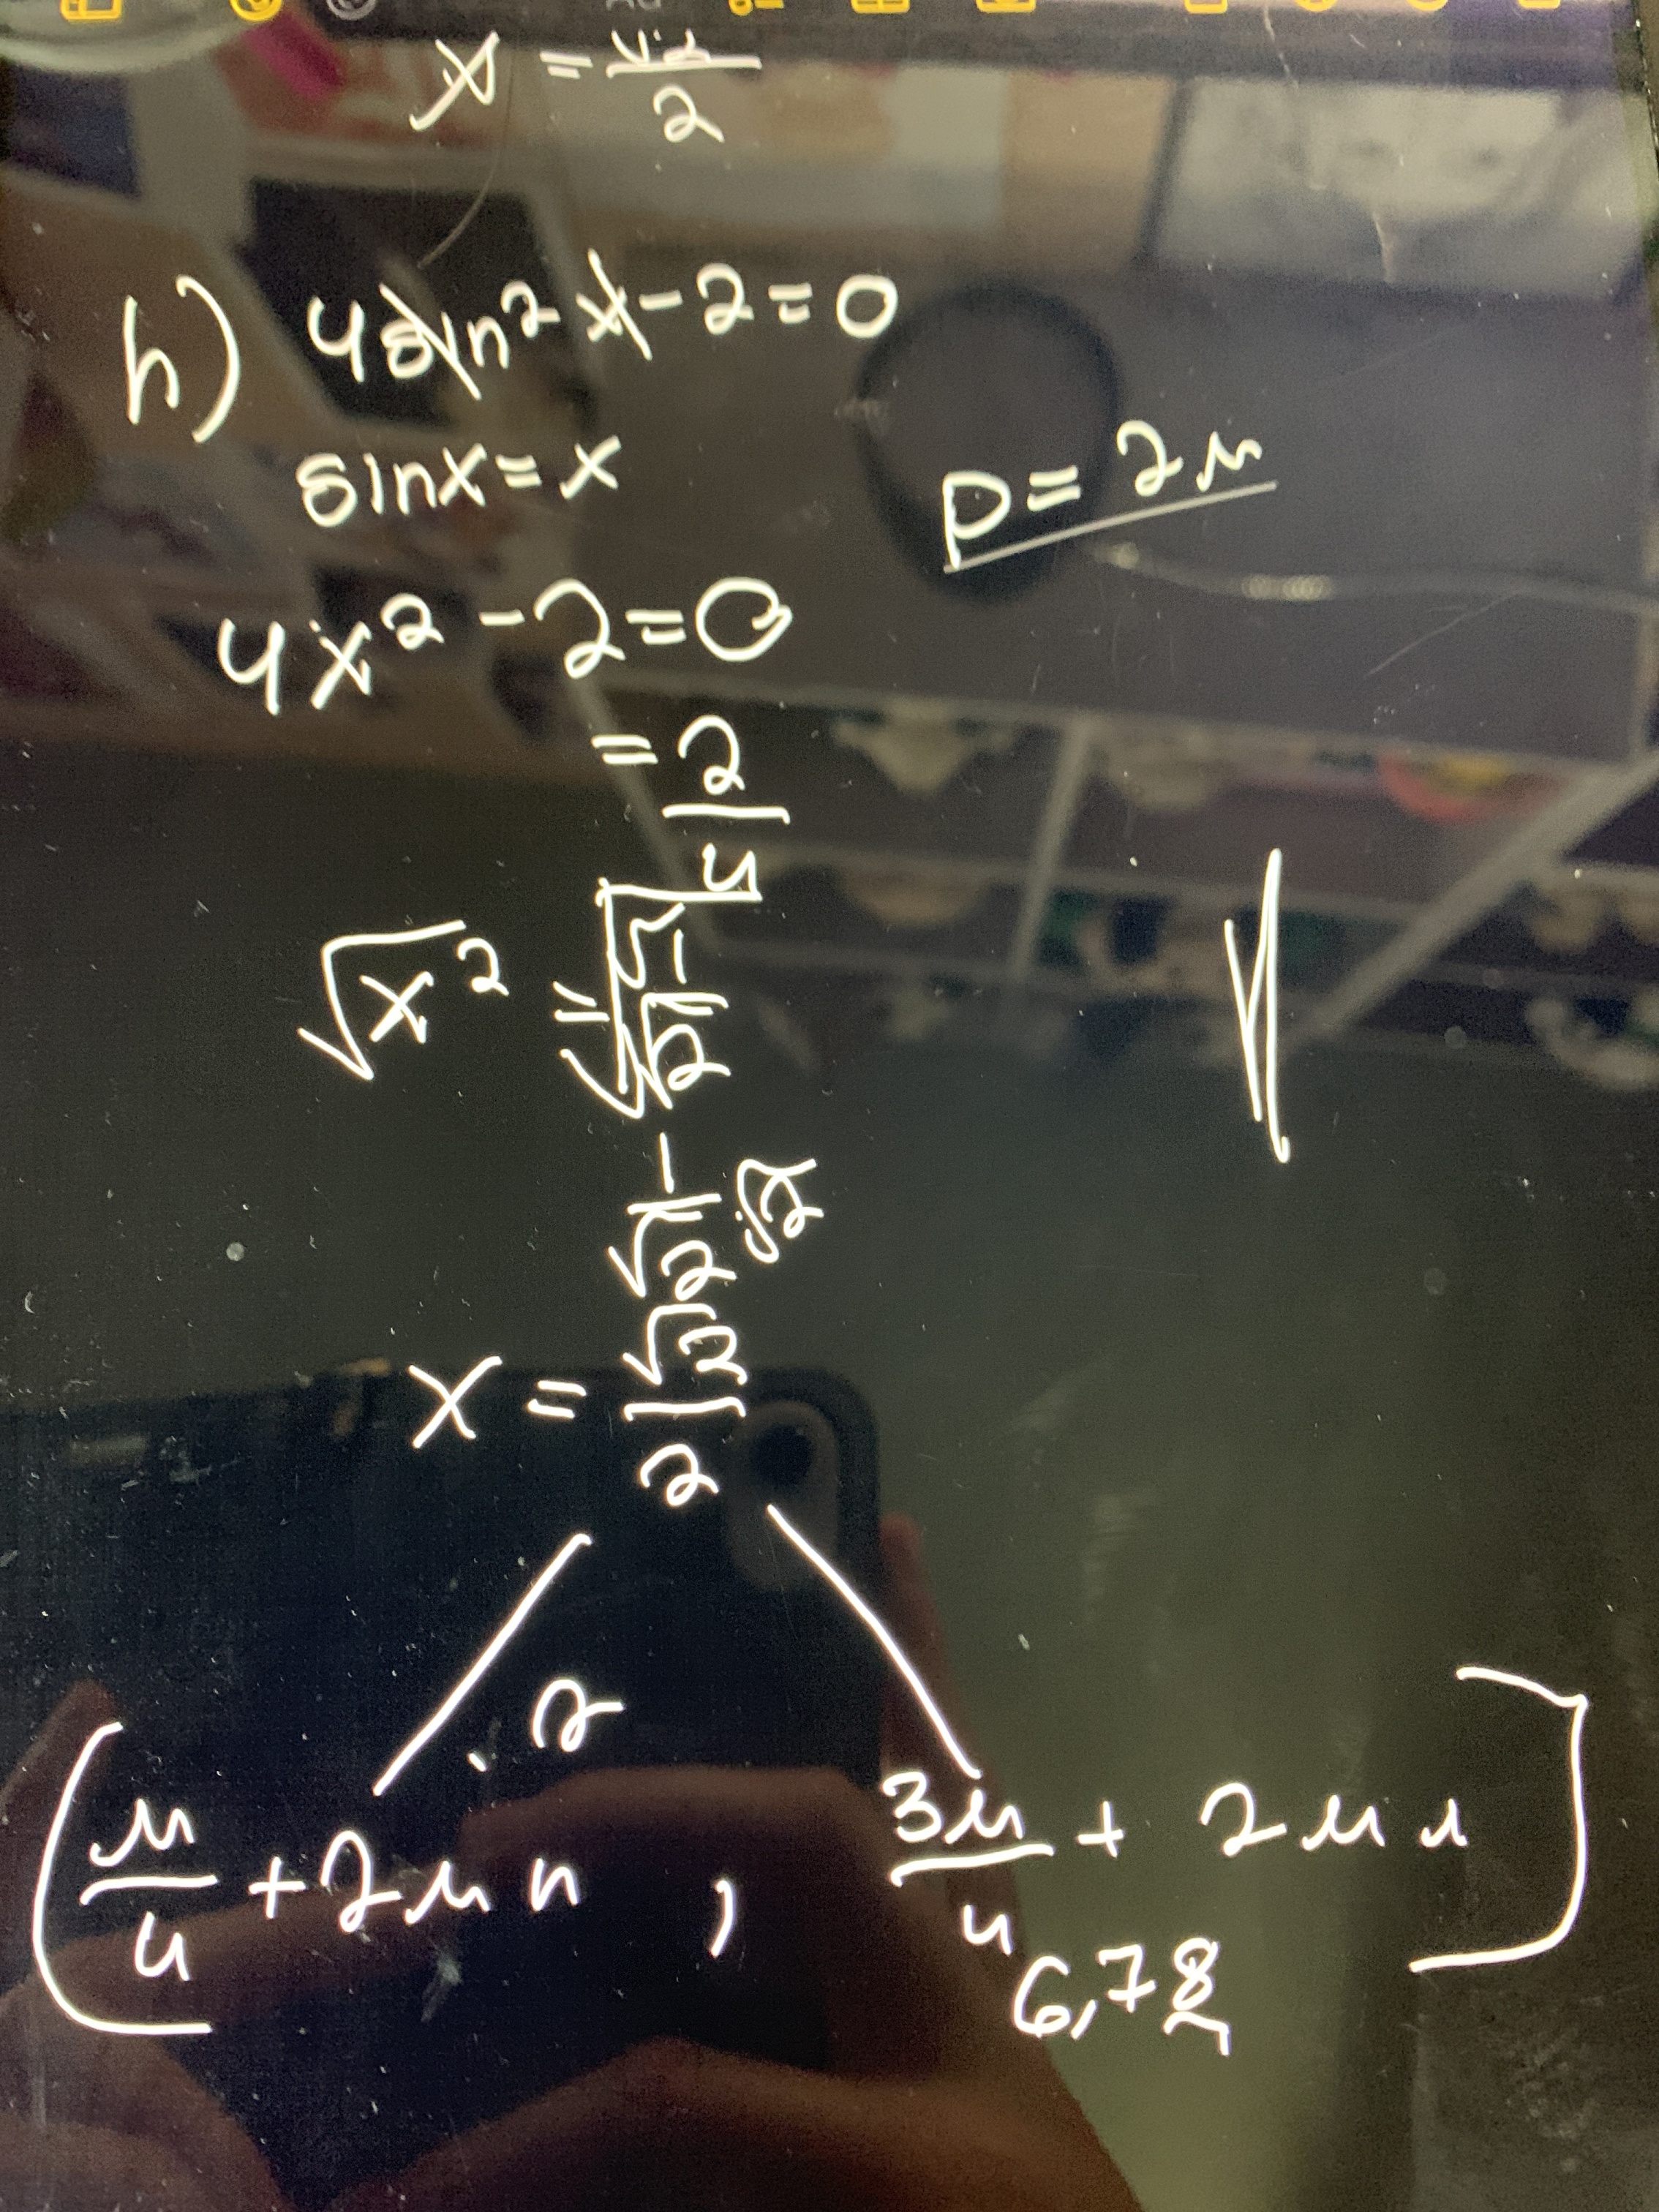 x = √2/2
h) 4sin²x-2=0
sinx=x
P=2π
4x²-2=0
= 2/4
√x² = √1/√2
√1/√2 · √2/√2
x = √2/2
π/4 + 2πn , 3π/4 + 2πn
6,78